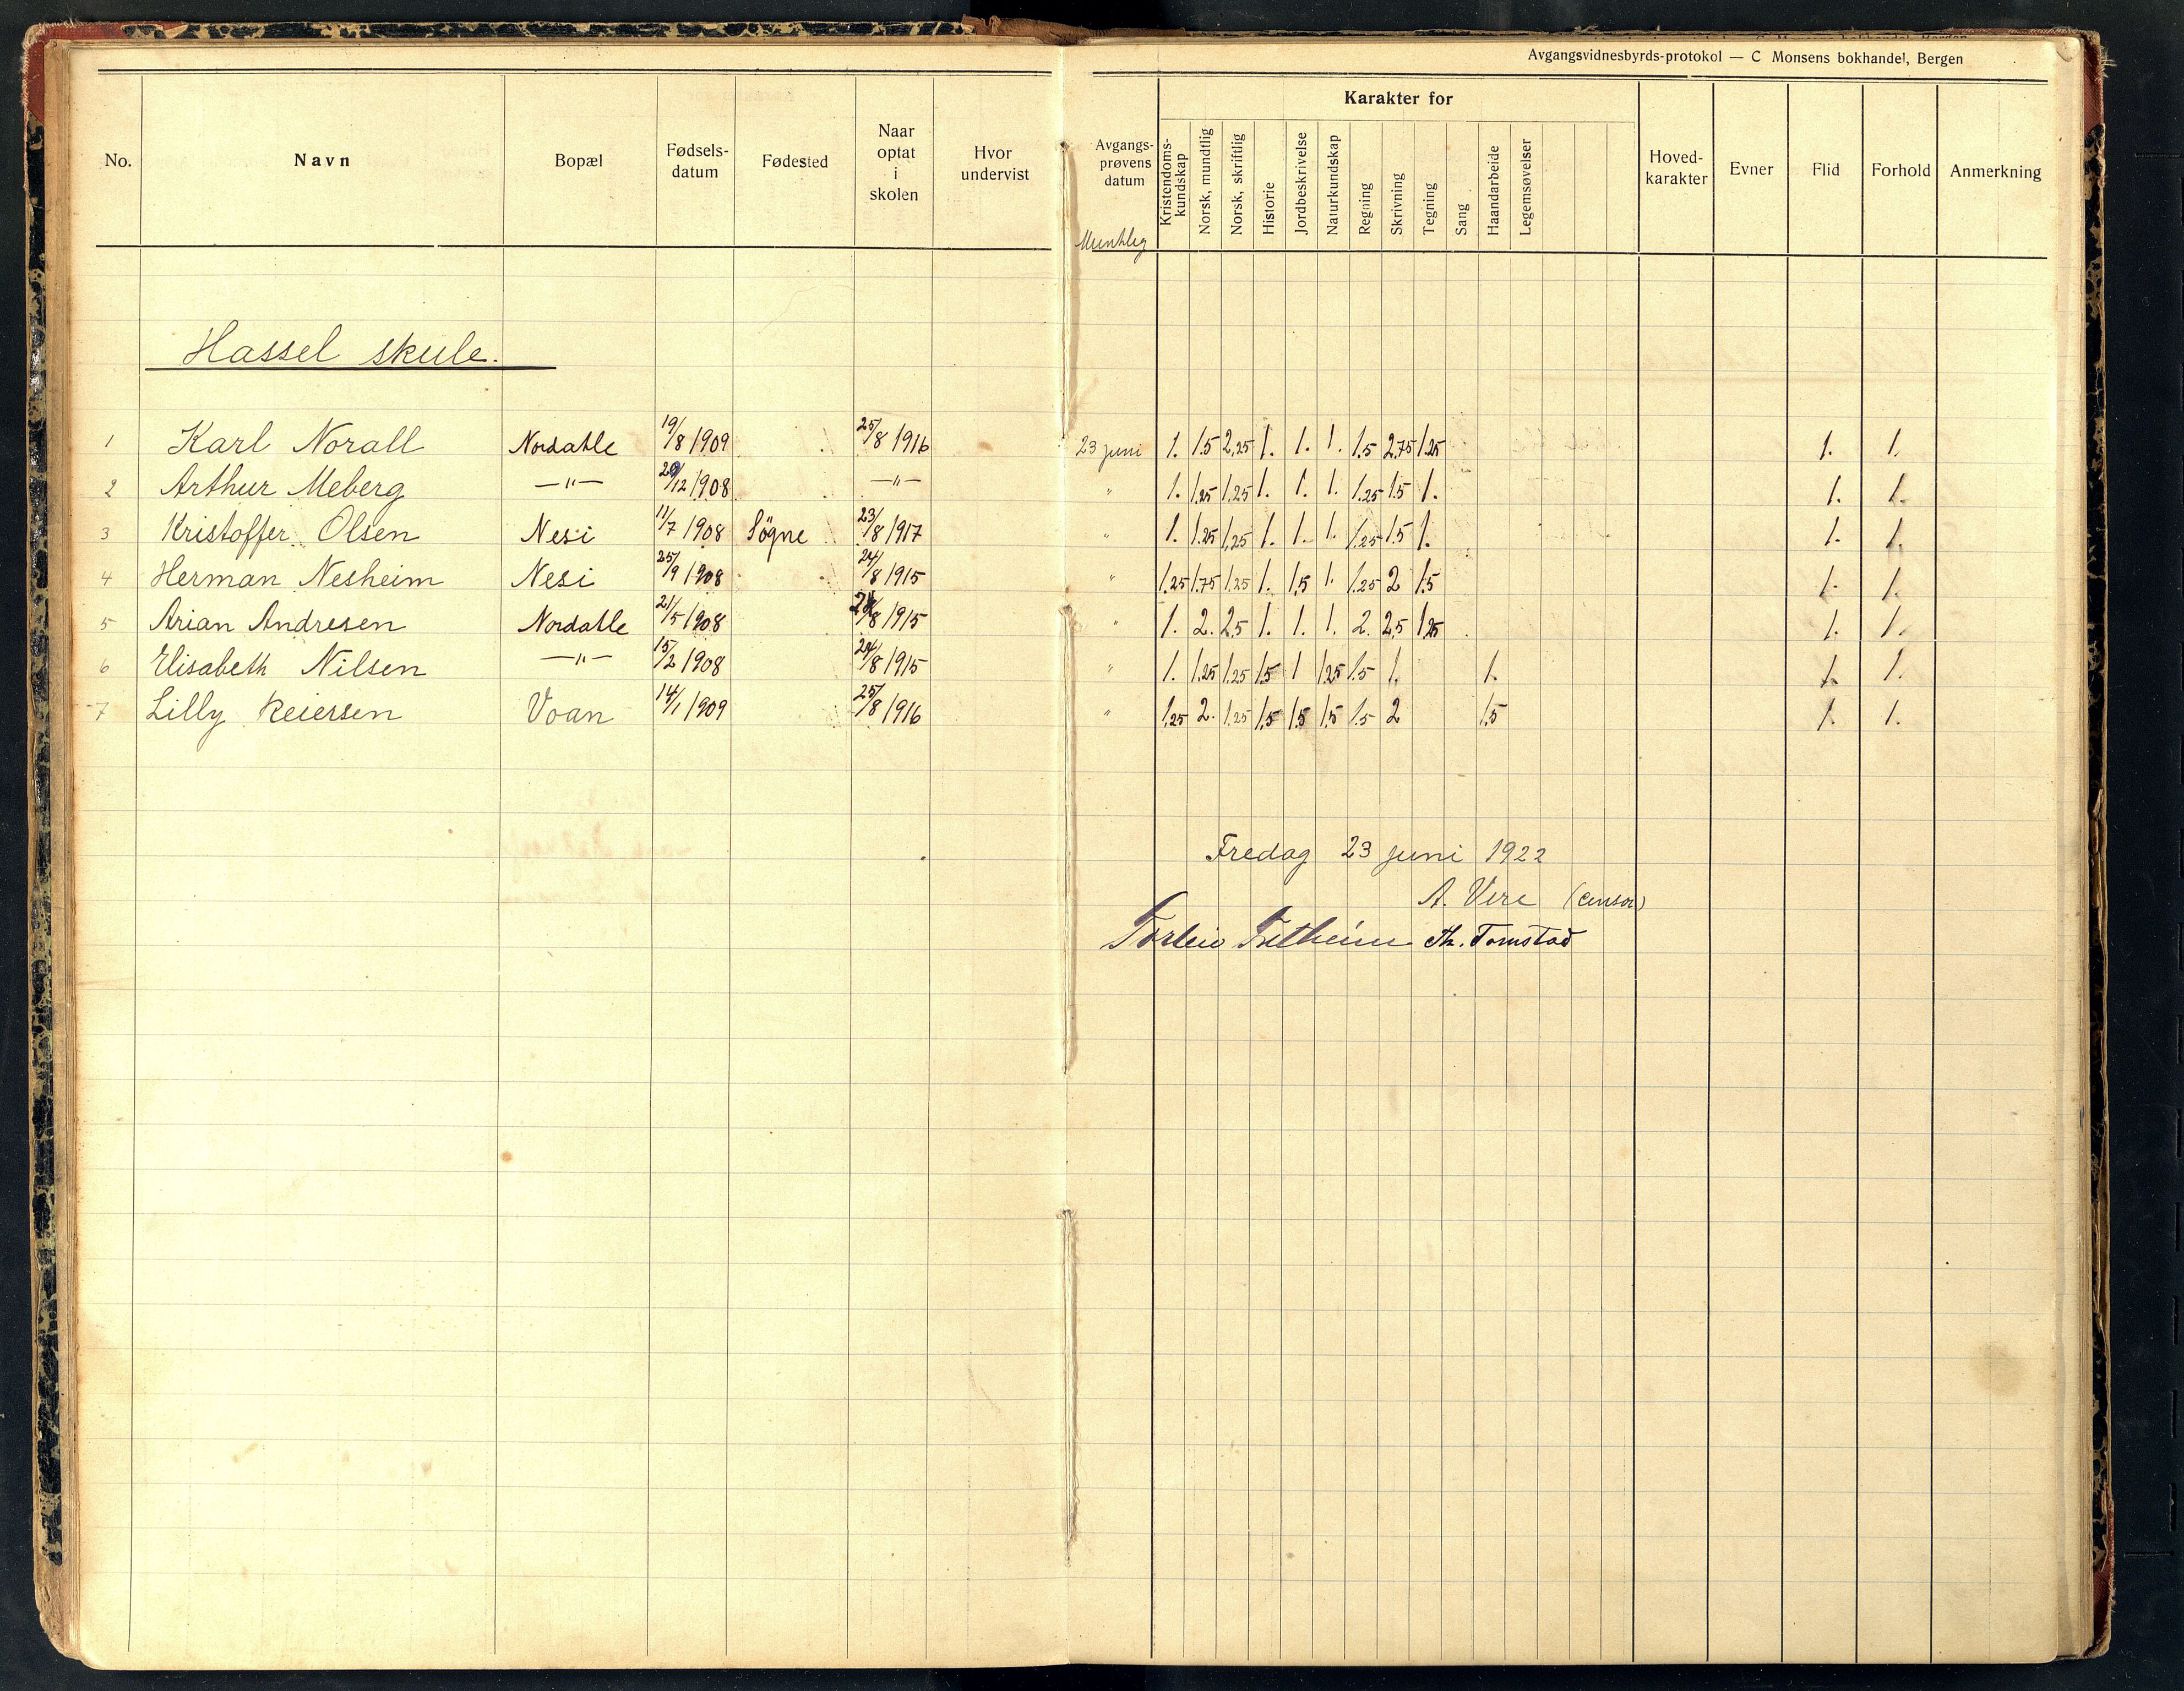 Avgangsvidnesbyrds-protokol — C Monsens bokhandel, Bergen
No. Navn Bopæl Fødsels-datum Fødested Naar optat i skolen Hvor undervist Avgangs-prøvens datum Karakter for Hoved-karakter Evner Flid Forhold Anmerkning
Kristendoms-kundskap Norsk, mundtlig Norsk, skriftlig Historie Jordbeskrivelse Naturkundskap Regning Skrivning Tegning Sang Haandarbeide Legemsøvelser
Munhleg
Hassel skule.
1 Karl Norall Nordahle 19/8 1909 25/8 1916 23 juni 1. 1.5 2,25 1. 1. 1. 1.5 2,75 1.25 1. 1.
2 Arthur Meberg —"— 29/12 1908 —"— " 1. 1.25 1,25 1. 1. 1. 1.25 1.5 1. 1. 1.
3 Kristoffer Olsen Nesi 11/7 1908 Sögne 23/8 1917 " 1. 1.25 1,25 1. 1. 1. 1.25 1.5 1. 1. 1.
4 Herman Nesheim Nesi 25/9 1908 24/8 1915 " 1.25 1.75 1.25 1. 1,5 1. 1.25 2 1.5 1. 1.
5 Arian Andresen Nordahle 21/5 1908 24/8 1915 " 1. 2. 2,5 1. 1. 1. 2. 2,5 1.25 1. 1.
6 Elisabeth Nilsen —"— 15/2 1908 24/8 1915 " 1. 1.25 1.25 1.5 1 1.25 1.5 1. 1. 1. 1.
7 Lilly Reiersen Voan 14/1 1909 25/8 1916 " 1,25 2. 1.25 1,5 1,5 1.5 1.5 2 1.5 1. 1.
Fredag 23 juni 1922
A. Vere (censor)
Torleiv Tretheim Th. Tomstad